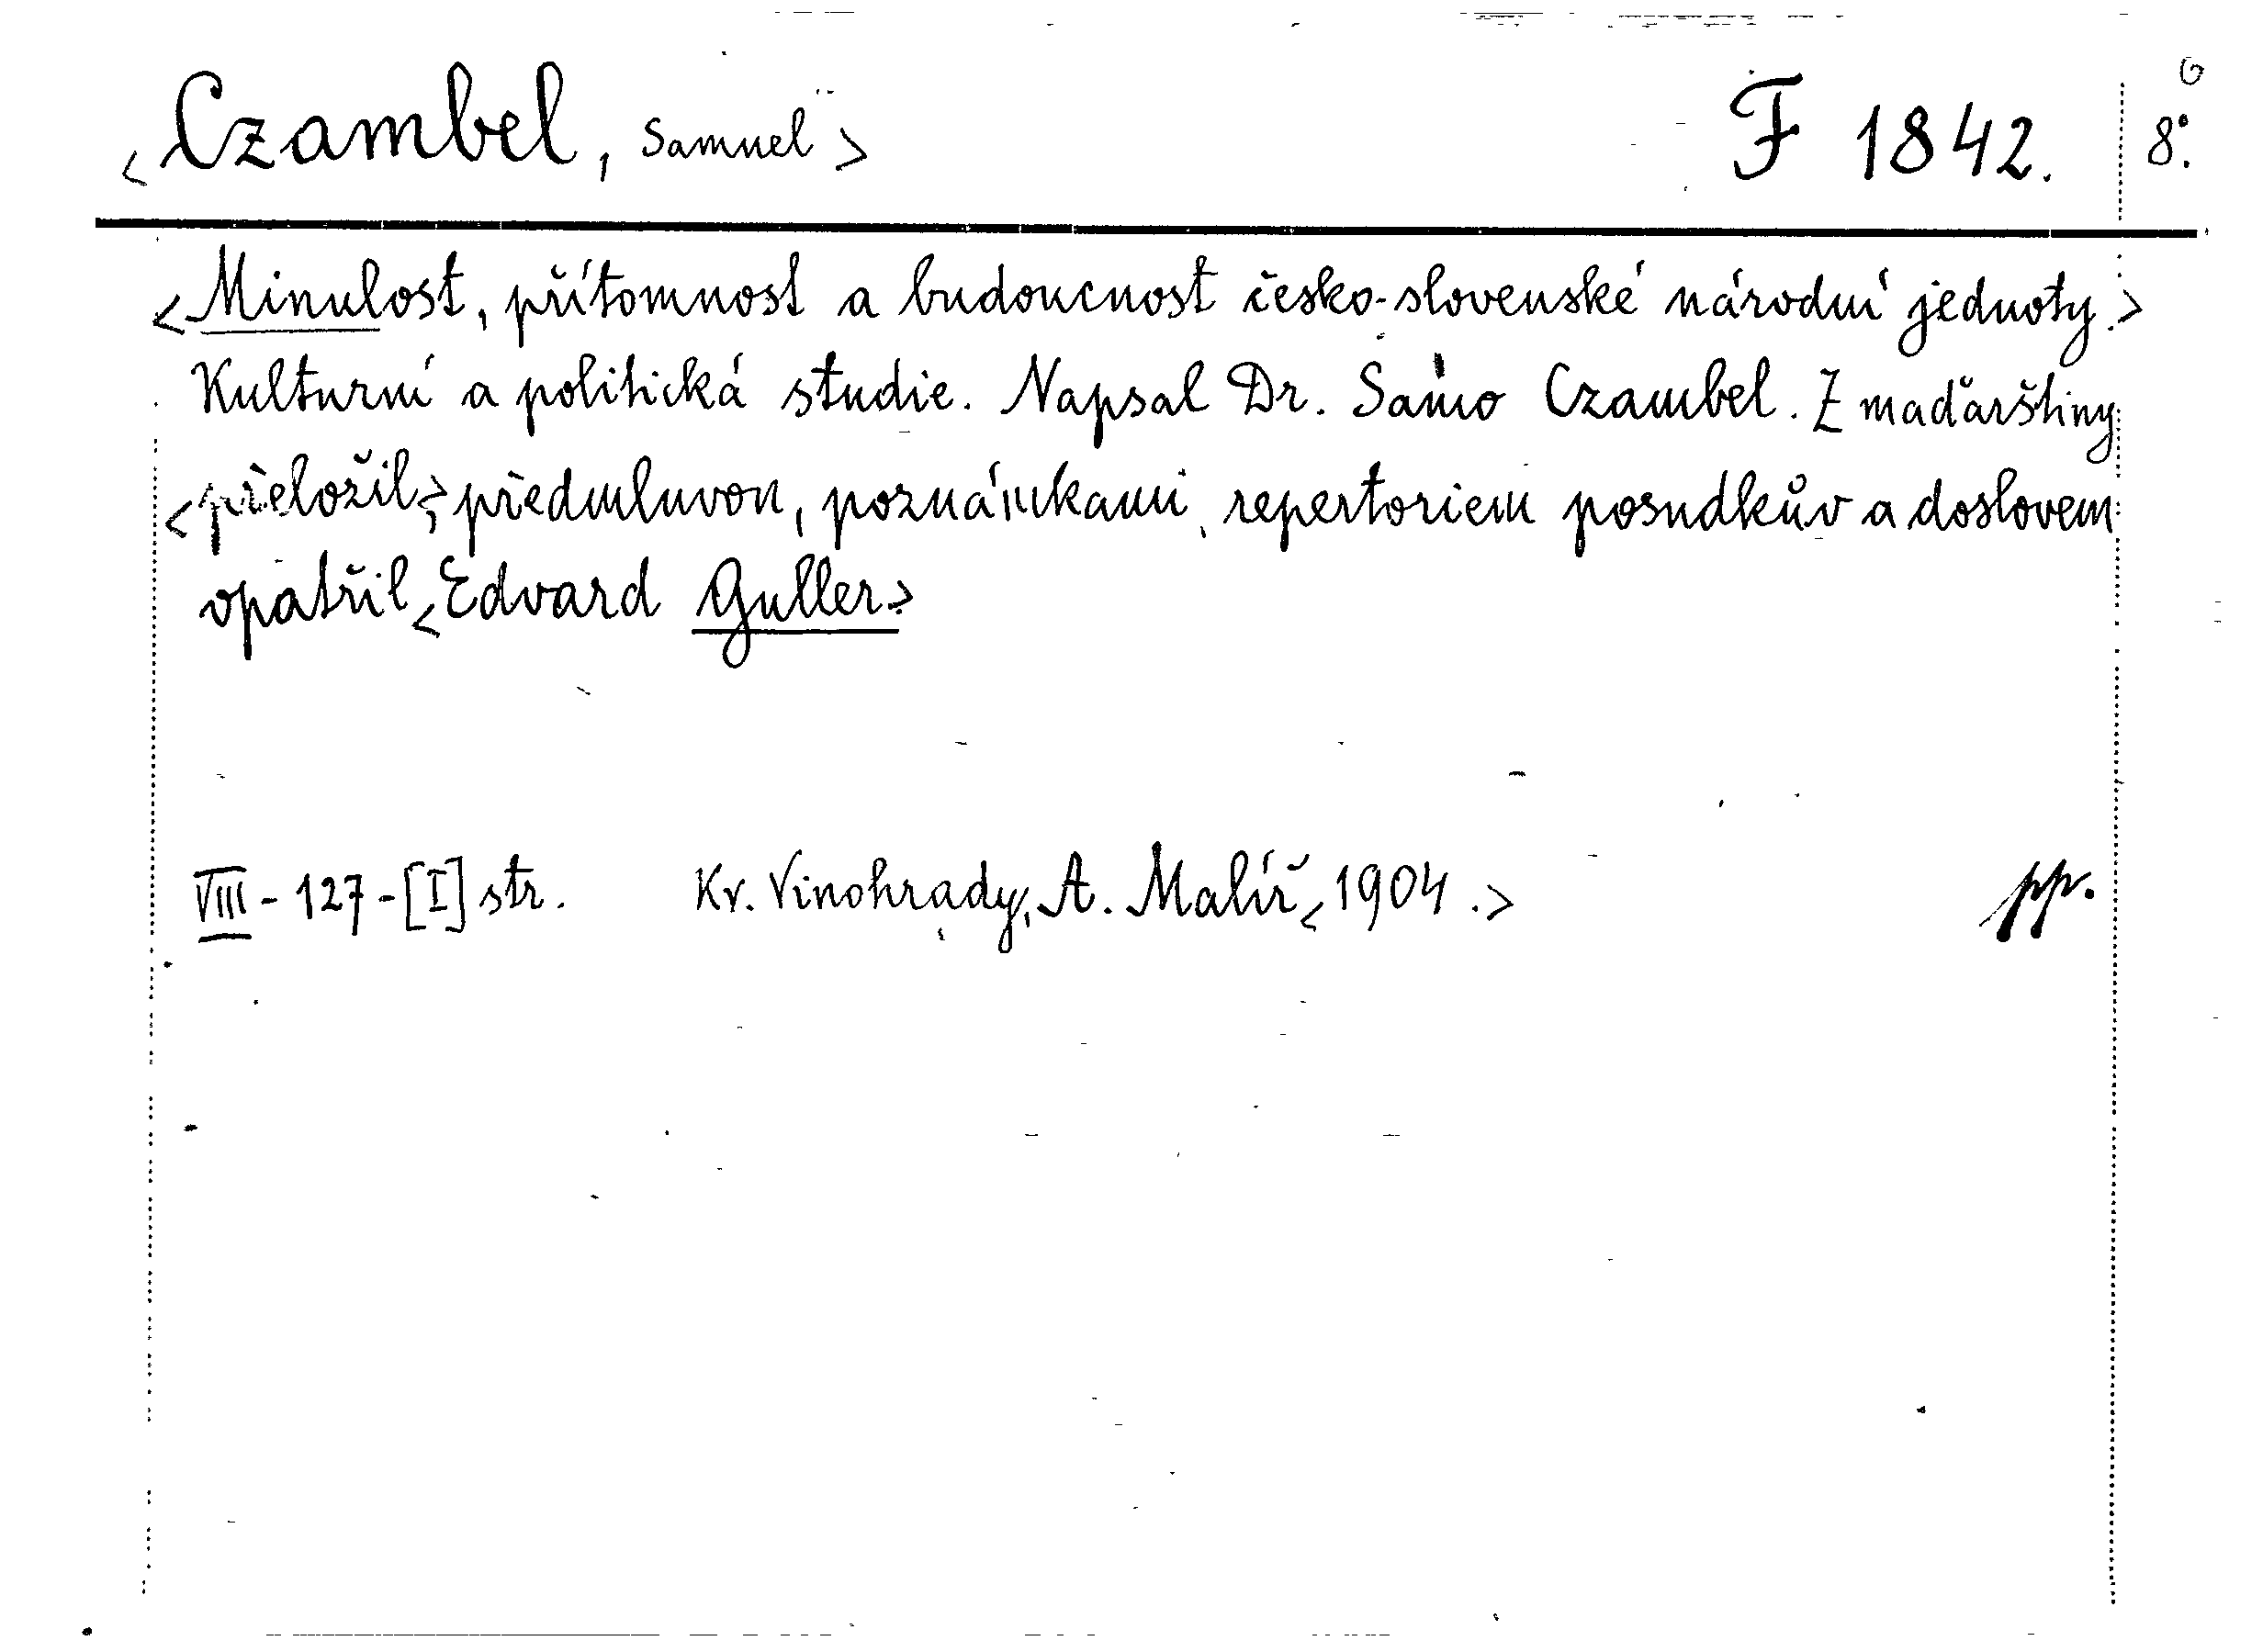 <Czambel, Samuel> F 1842. 8°.
<Minulost, přítomnost a budoucnost česko-slovenské národní jednoty.>
Kulturní a politická studie. Napsal Dr. Samo Czambel. Z maďarštiny
<přeložil,> předmluvou, poznámkami, repertoriem posudkův a doslovem
opatřil <Edvard Guller.>
VIII - 127 - [I] str. Kr. Vinohrady, A. Malíř, <1904.> pp.